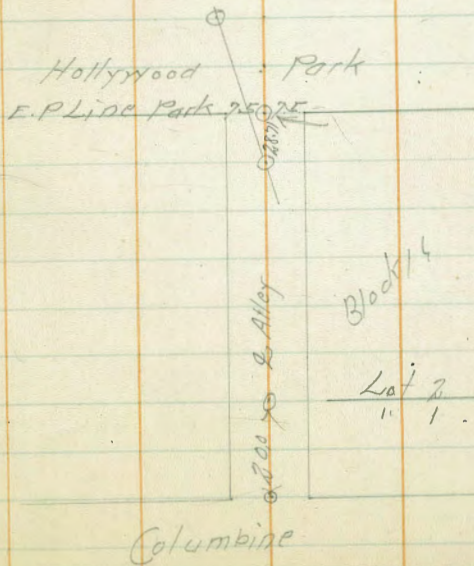 Hollywood Park
E.P Line Park 7.5 7.5
28.71
℄ Alley
Block 14
Lot 2
" 1
200
Columbine